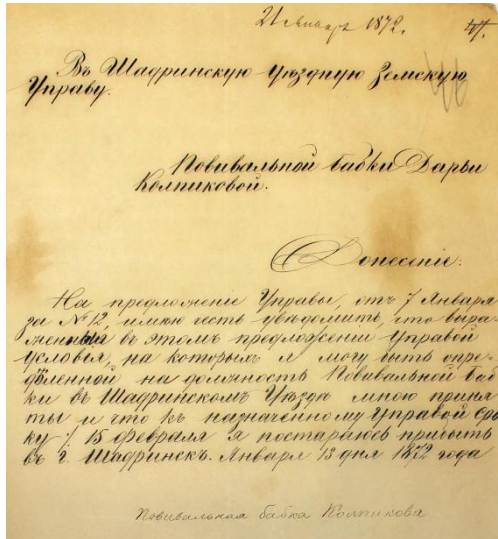 21 января 1872.
47.
Въ Шадринскую Уѣздную Земскую
Управу.
46
Повивальной бабки Дарьи
Колпиковой.
Донесеніе.
На предложеніе Управы, отъ 7 Января
за № 12, имѣю честь увѣдомить, что выра-
женныя въ этомъ предложеніи Управой
условья, на которыхъ я могу быть опре-
дѣленной на должность Повивальной Баб-
ки въ Шадринскомъ Уѣздѣ мною приня
ты и что къ назначенному Управой сро
ку / 15 февраля я постараюсь прибыть
въ г. Шадринскъ. Января 13 дня 1872 года
Повивальная бабка Колпикова